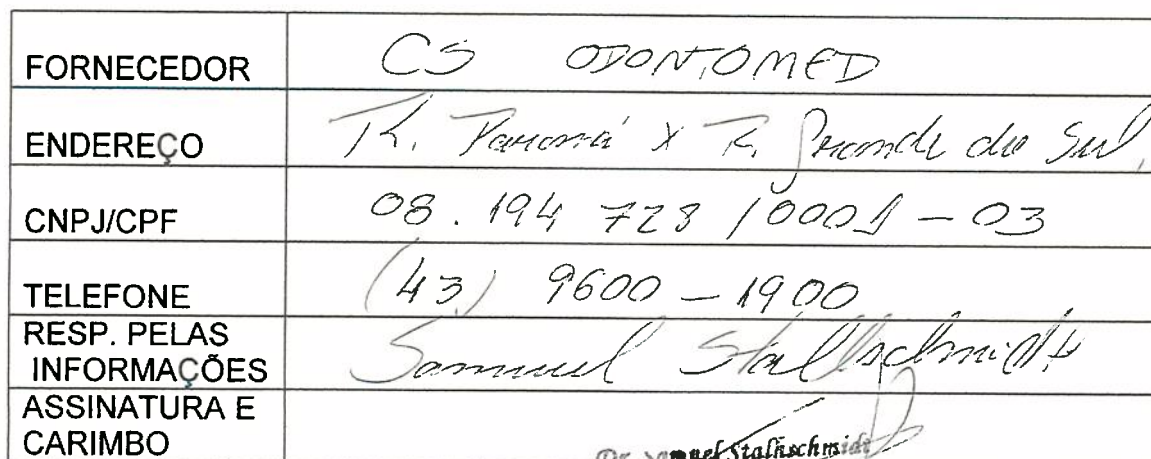 FORNECEDOR CS ODONTOMED
ENDEREÇO R. Paraná x R. Grande do Sul,
CNPJ/CPF 08.194 728 / 0001 - 03
TELEFONE (43) 9600 - 1900
RESP. PELAS
INFORMAÇÕES Samuel Stallschmidt
ASSINATURA E
CARIMBO Dr. Samuel Stalhschmidt